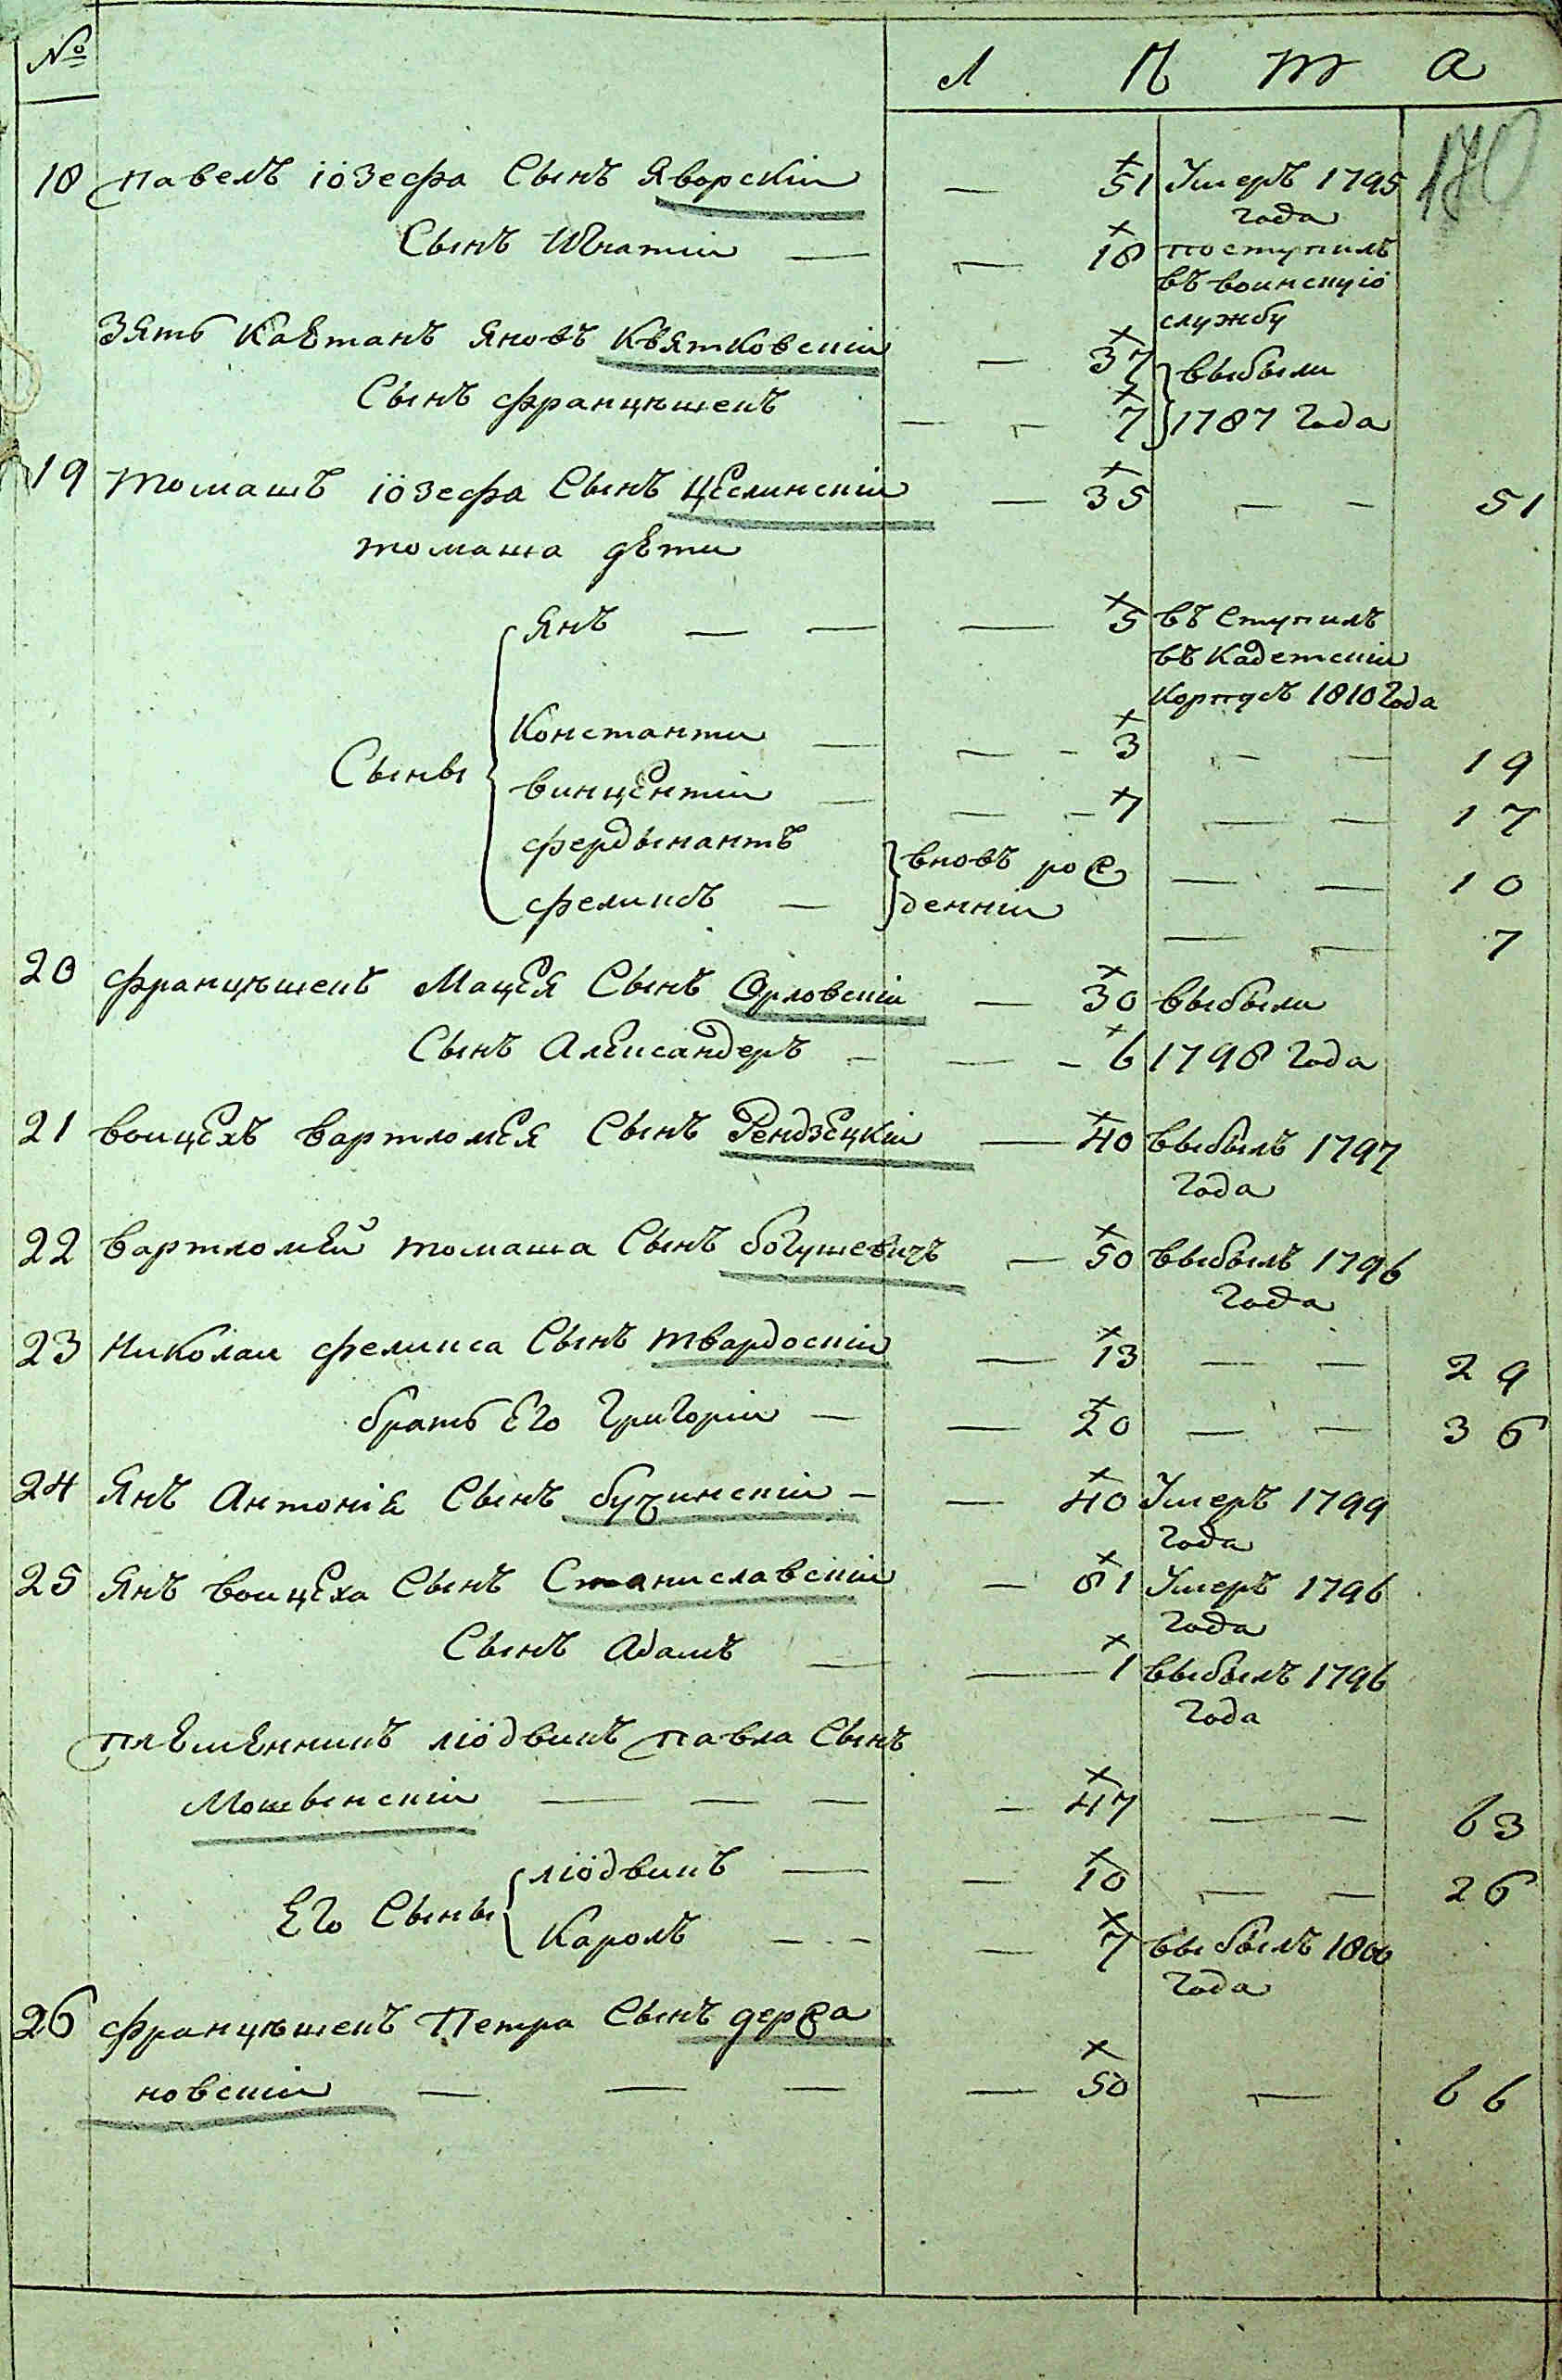 № Л Ѣ т а
170
18 павелъ іозефа Сынъ Яворскіи — 51 Умеръ 1795 года
Сынъ Игнатіи — — 18 поступилъ въ воинскую службу
Зять Каетанъ Яновъ Квятковскіи — 37 выбыли
Сынъ францишекъ — — 7 1787 года
19 томашъ іозефа Сынъ Цеслинскіи — 35 — — 51
томаша дети
Янъ — — — 5 въ Ступилъ
въ Кадетскіи
Корпусъ 1810 года
Константи — — - 3 — — 19
Сыны винцентіи — — - 1 — — 17
фердынантъ вновь рож — — 10
феликсъ — деннiи — — 7
20 францишекъ Мацея Сынъ Орловскіи — 30 выбыли
Сынъ Александеръ — — - 6 1798 года
21 воицехъ вартломея Сынъ Рендзецкіи — 40 выбылъ 1797
года
22 вартломей томаша Сынъ богушевичъ — 50 выбылъ 1796
года
23 Николаи феликса Сынъ твардоскіи — 13 — — 29
братъ Его Григоріи — — 20 — — 36
24 Янъ Антонія Сынъ бучинскіи — — 40 Умеръ 1799
года
25 Янъ воицеха Сынъ Станиславскіи — 81 Умеръ 1796
года
Сынъ Адамъ — — 1 выбылъ 1796
года
племенникъ людвикъ павла Сынъ
Мошвенскіи — — — - 47 — — 63
людвикъ — — 10 — — 26
Его Сыны Каролъ — - - — 7 выбылъ 1800
года
26 францишекъ Петра Сынъ держа
новскіи — — — — 50 — 66